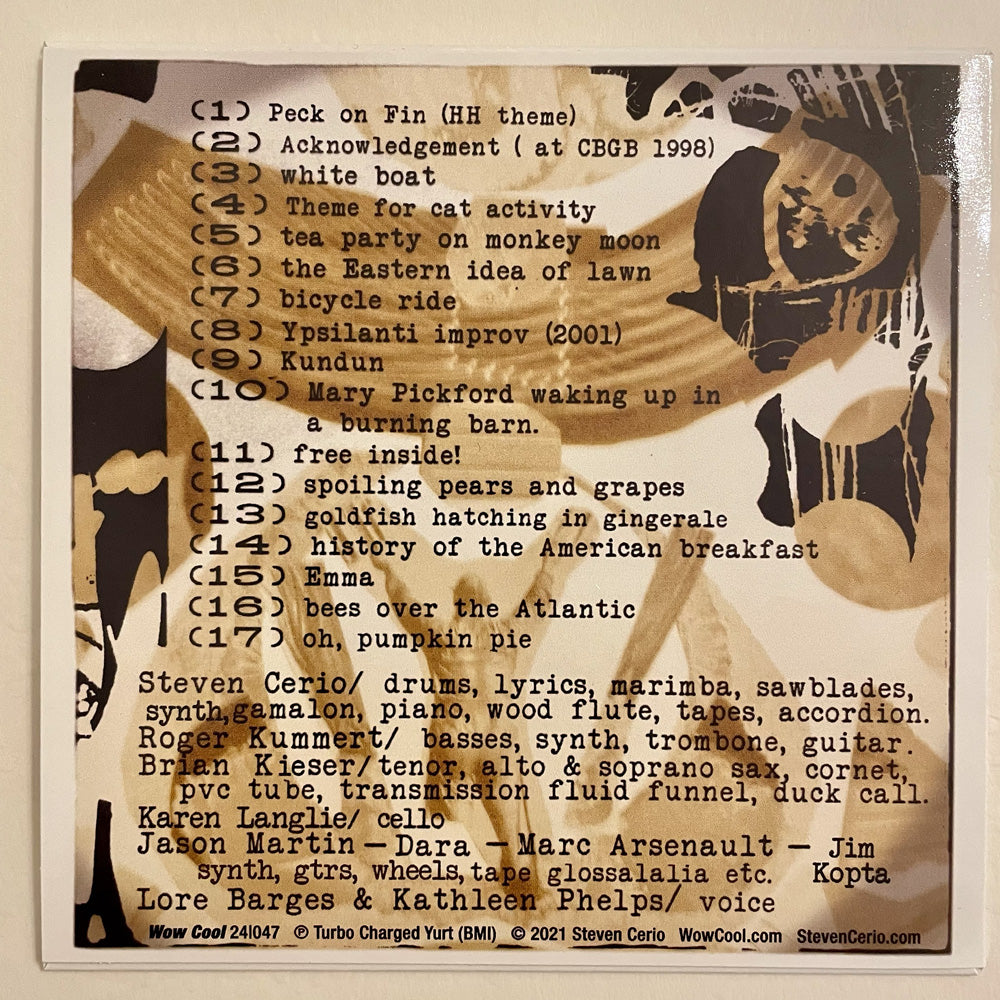 (1) Peck on Fin (HH theme)
(2) Acknowledgement ( at CBGB 1998)
(3) white boat
(4) Theme for cat activity
(5) tea party on monkey moon
(6) the Eastern idea of lawn
(7) bicycle ride
(8) Ypsilanti improv (2001)
(9) Kundun
(10) Mary Pickford waking up in
a burning barn.
(11) free inside!
(12) spoiling pears and grapes
(13) goldfish hatching in gingerale
(14) history of the American breakfast
(15) Emma
(16) bees over the Atlantic
(17) oh, pumpkin pie
Steven Cerio/ drums, lyrics, marimba, sawblades,
synth,gamalon, piano, wood flute, tapes, accordion.
Roger Kummert/ basses, synth, trombone, guitar.
Brian Kieser/tenor, alto & soprano sax, cornet,
pvc tube, transmission fluid funnel, duck call.
Karen Langlie/ cello
Jason Martin — Dara — Marc Arsenault — Jim
synth, gtrs, wheels, tape glossalalia etc. Kopta
Lore Barges & Kathleen Phelps/ voice
Wow Cool 24l047 ℗ Turbo Charged Yurt (BMI) © 2021 Steven Cerio WowCool.com StevenCerio.com